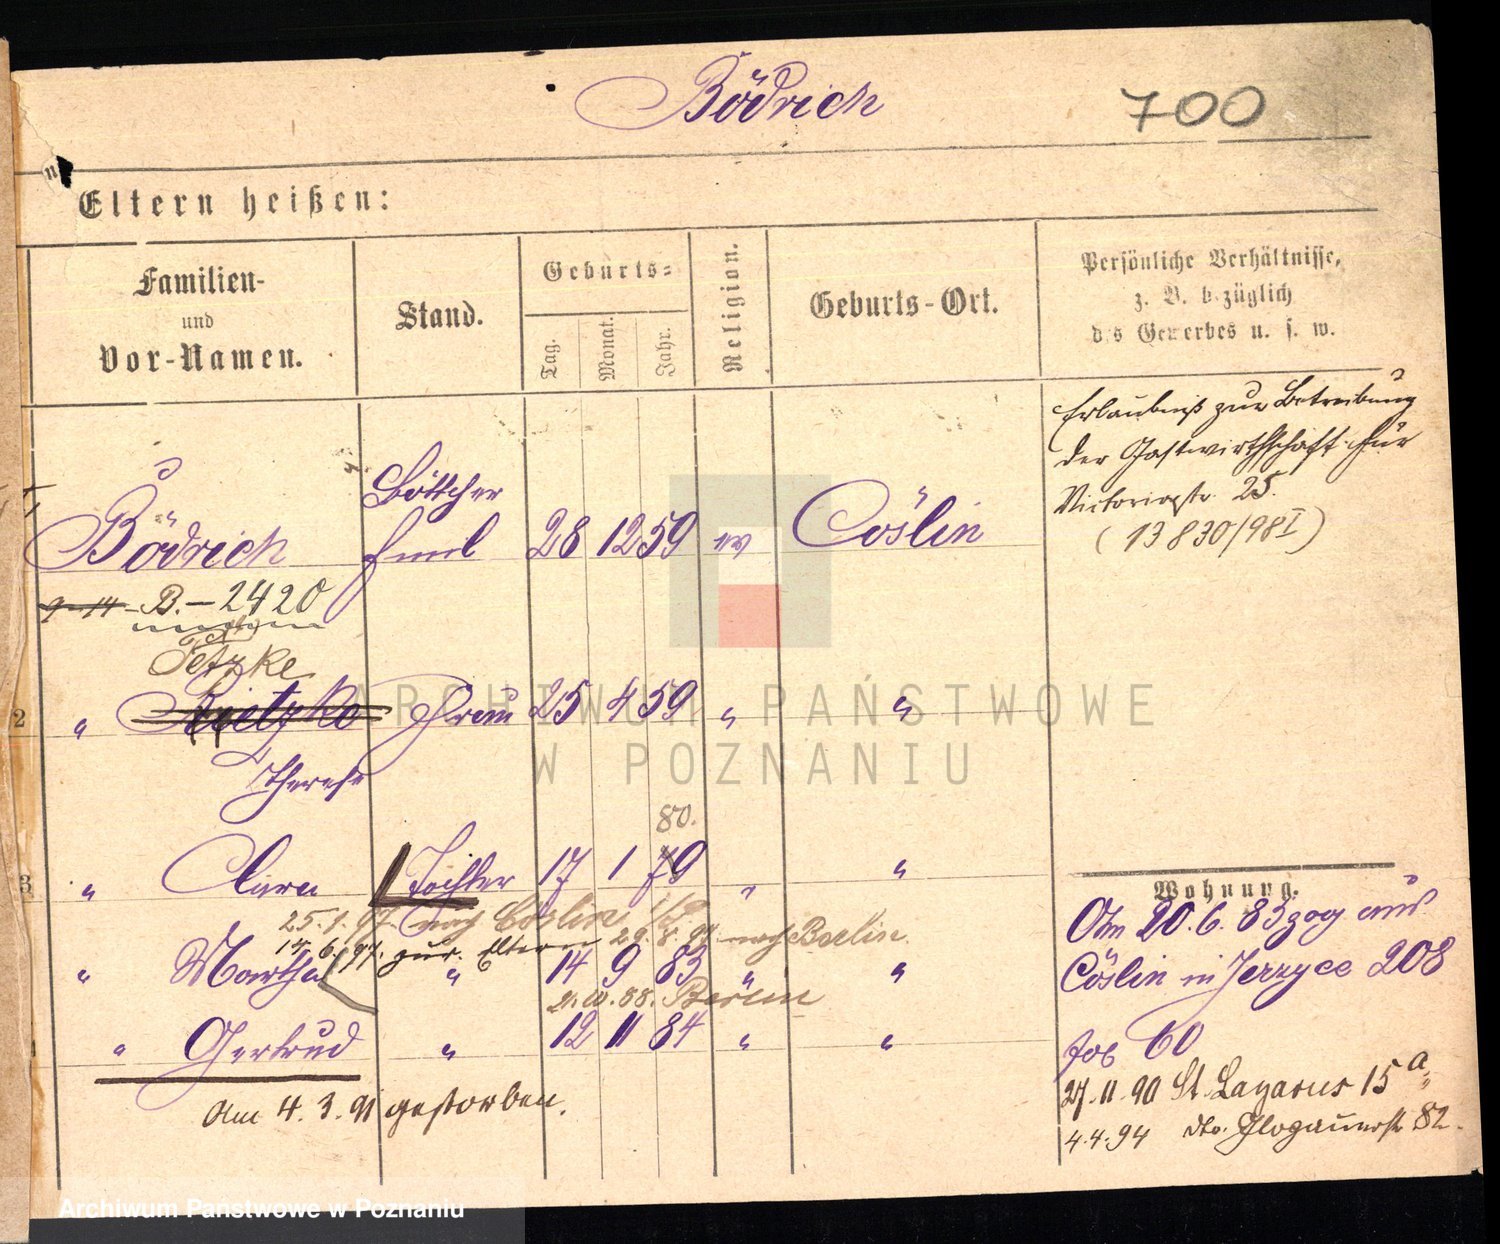 Bödrich
700
Eltern heißen:
Familien-
und
Vor-Namen.
Stand.
Geburts-
Tag.
Monat.
Jahr.
Religion.
Geburts-Ort.
Persönliche Verhältnisse,
z. B. bezüglich
des Gewerbes u. s. w.
Erlaubniß zur Betreibung
der Gastwirthschaft für
Victoriastr. 25.
(13830/98 I)
Böttcher
Bödrich Emil 28 12 59 ev Cöslin
B.-2420
Tetzke
2 " Frau 25 4 59 " "
Therese
80.
3 " Clara Tochter 17 1 79 " "
25.1.97. nach Cöslin
17.6.97. zur. Eltern 29.8.98 nach Berlin.
" Martha " 14 9 83 " "
Berlin
" Gertrud " 12 11 84 " "
Am 4.3.91 gestorben.
Wohnung.
Am 20.6.83 zog aus
Cöslin in Jerzyce 208
jetz 60
27.11.90 St. Lazarus 15a
4.4.94 dto. Glogauerstr 82.
ARCHIWUM PAŃSTWOWE
W POZNANIU
Archiwum Państwowe w Poznaniu